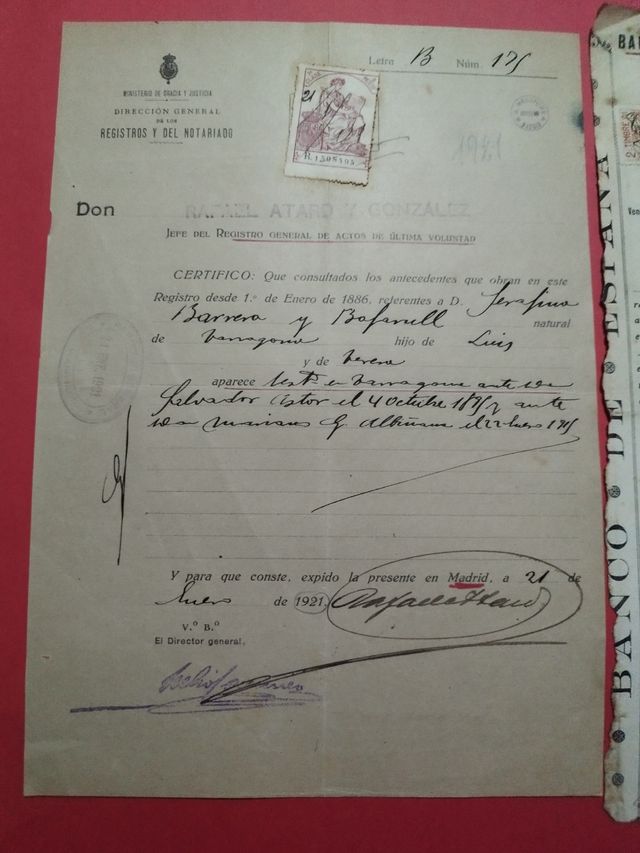 Letra B Núm. 175
MINISTERIO DE GRACIA Y JUSTICIA
DIRECCIÓN GENERAL
DE LOS
REGISTROS Y DEL NOTARIADO
21
R.1508595
1921
Don RAFAEL ATARD Y GONZALEZ
JEFE DEL REGISTRO GENERAL DE ACTOS DE ÚLTIMA VOLUNTAD
CERTIFICO: Que consultados los antecedentes que obran en este
Registro desde 1.º de Enero de 1886, referentes a D. Serafina
Barrera y Bofarull natural
de Tarragona hijo de Luis
y de Teresa
aparece test.º en Tarragona ante
Salvador el 4 Octubre y ante
Mariano G. Albiñana el 22 Enero
Y para que conste, expido la presente en Madrid, a 21 de
Enero de 1921.
Rafael Atard
V.º B.º
El Director general,
BANCO DE ESPAÑA
BAN
2
TIMBRE
Ven